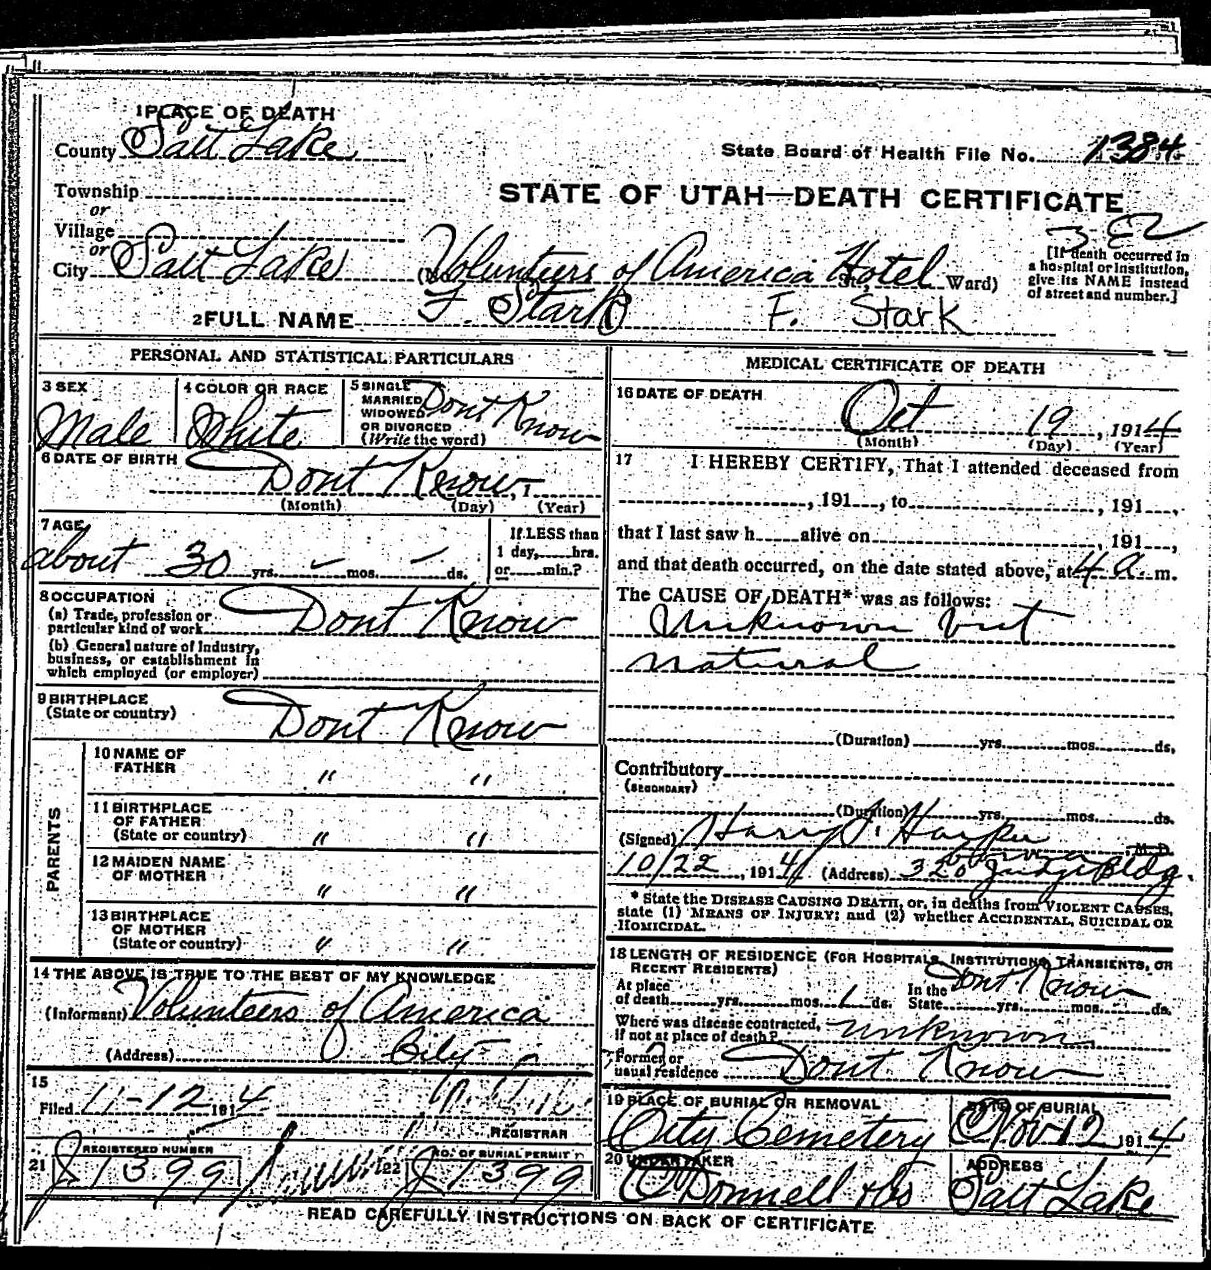 1 PLACE OF DEATH
County Salt Lake
State Board of Health File No. 1384
Township
or
Village
or
City Salt Lake
STATE OF UTAH—DEATH CERTIFICATE
(No. Volunteers of America Hotel St., Ward)
[If death occurred in
a hospital or institution,
give its NAME instead
of street and number.]
2 FULL NAME F. Stark F. Stark
PERSONAL AND STATISTICAL PARTICULARS
3 SEX
Male
4 COLOR OR RACE
White
5 SINGLE
MARRIED
WIDOWED
OR DIVORCED
(Write the word)
Dont Know
6 DATE OF BIRTH
Dont Know, 1
(Month) (Day) (Year)
7 AGE
about 30 yrs. mos. ds.
If LESS than
1 day, hrs.
or min.?
8 OCCUPATION
(a) Trade, profession or
particular kind of work Dont Know
(b) General nature of Industry,
business, or establishment in
which employed (or employer)
9 BIRTHPLACE
(State or country) Dont Know
PARENTS
10 NAME OF
FATHER " "
11 BIRTHPLACE
OF FATHER
(State or country) " "
12 MAIDEN NAME
OF MOTHER " "
13 BIRTHPLACE
OF MOTHER
(State or country) " "
14 THE ABOVE IS TRUE TO THE BEST OF MY KNOWLEDGE
(Informant) Volunteers of America
(Address) City
15
Filed 11-12 1914
REGISTRAR
21 REGISTERED NUMBER
J 1399
22 NO. OF BURIAL PERMIT
J 1399
MEDICAL CERTIFICATE OF DEATH
16 DATE OF DEATH
Oct 19, 1914
(Month) (Day) (Year)
17 I HEREBY CERTIFY, That I attended deceased from
, 191 , to , 191 ,
that I last saw h alive on , 191 ,
and that death occurred, on the date stated above, at 4 a. m.
The CAUSE OF DEATH* was as follows:
Unknown but
natural
(Duration) yrs. mos. ds.
Contributory
(SECONDARY)
(Duration) yrs. mos. ds.
(Signed) Harry S. Harper, M. D.
10/22, 1914 (Address) 320 Judge Bldg.
* State the DISEASE CAUSING DEATH, or, in deaths from VIOLENT CAUSES,
state (1) MEANS OF INJURY; and (2) whether ACCIDENTAL, SUICIDAL OR
HOMICIDAL.
18 LENGTH OF RESIDENCE (FOR HOSPITALS, INSTITUTIONS, TRANSIENTS, OR
RECENT RESIDENTS)
At place
of death yrs. mos. 1 ds.
In the
State yrs. mos. ds.
Dont Know
Where was disease contracted,
if not at place of death? unknown
Former or
usual residence Dont Know
19 PLACE OF BURIAL OR REMOVAL
City Cemetery
DATE OF BURIAL
Nov 12 1914
20 UNDERTAKER
O'Donnell & Co
ADDRESS
Salt Lake
READ CAREFULLY INSTRUCTIONS ON BACK OF CERTIFICATE